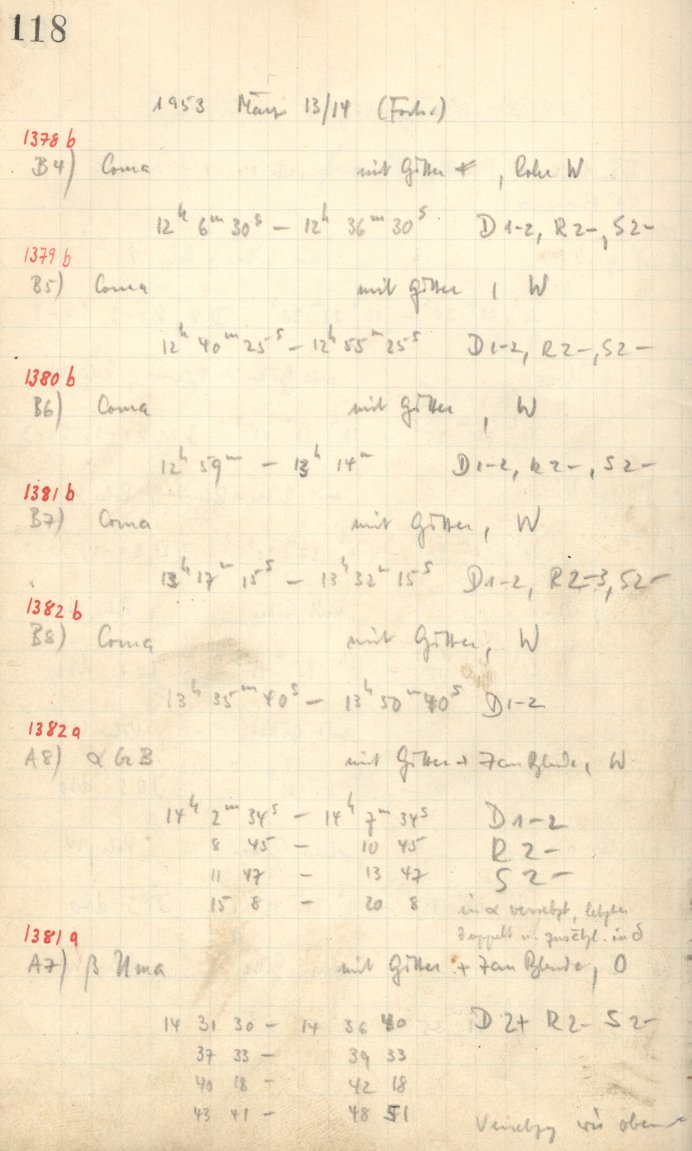 118
1953 März 13/14 (Forts.)
1378 b
B4) Coma mit Gitter, Rohr W
12h 6m 30s – 12h 36m 30s D 1-2, R 2-, S 2-
1379 b
B5) Coma mit Gitter, W
12h 40m 25s – 12h 55m 25s D 1-2, R 2-, S 2-
1380 b
B6) Coma mit Gitter, W
12h 59m – 13h 14m D 1-2, R 2-, S 2-
1381 b
B7) Coma mit Gitter, W
13h 17m 15s – 13h 32m 15s D 1-2, R 2-3, S 2-
1382 b
B8) Coma mit Gitter, W
13h 35m 40s – 13h 50m 40s D 1-2
1382 a
A8) α CrB mit Gitter + 7cm Blende, W
14h 2m 34s – 14h 7m 34s D 1-2
8 45 – 10 45 R 2-
11 47 – 13 47 S 2-
15 8 – 20 8 in α versetzt, letztes
doppelt u. zusätzl. in δ
1381 a
A7) β Uma mit Gitter + 7cm Blende, O
14 31 30 – 14 36 40 D 2+ R 2- S 2-
37 33 – 39 33
40 18 – 42 18
43 41 – 48 51 wie oben